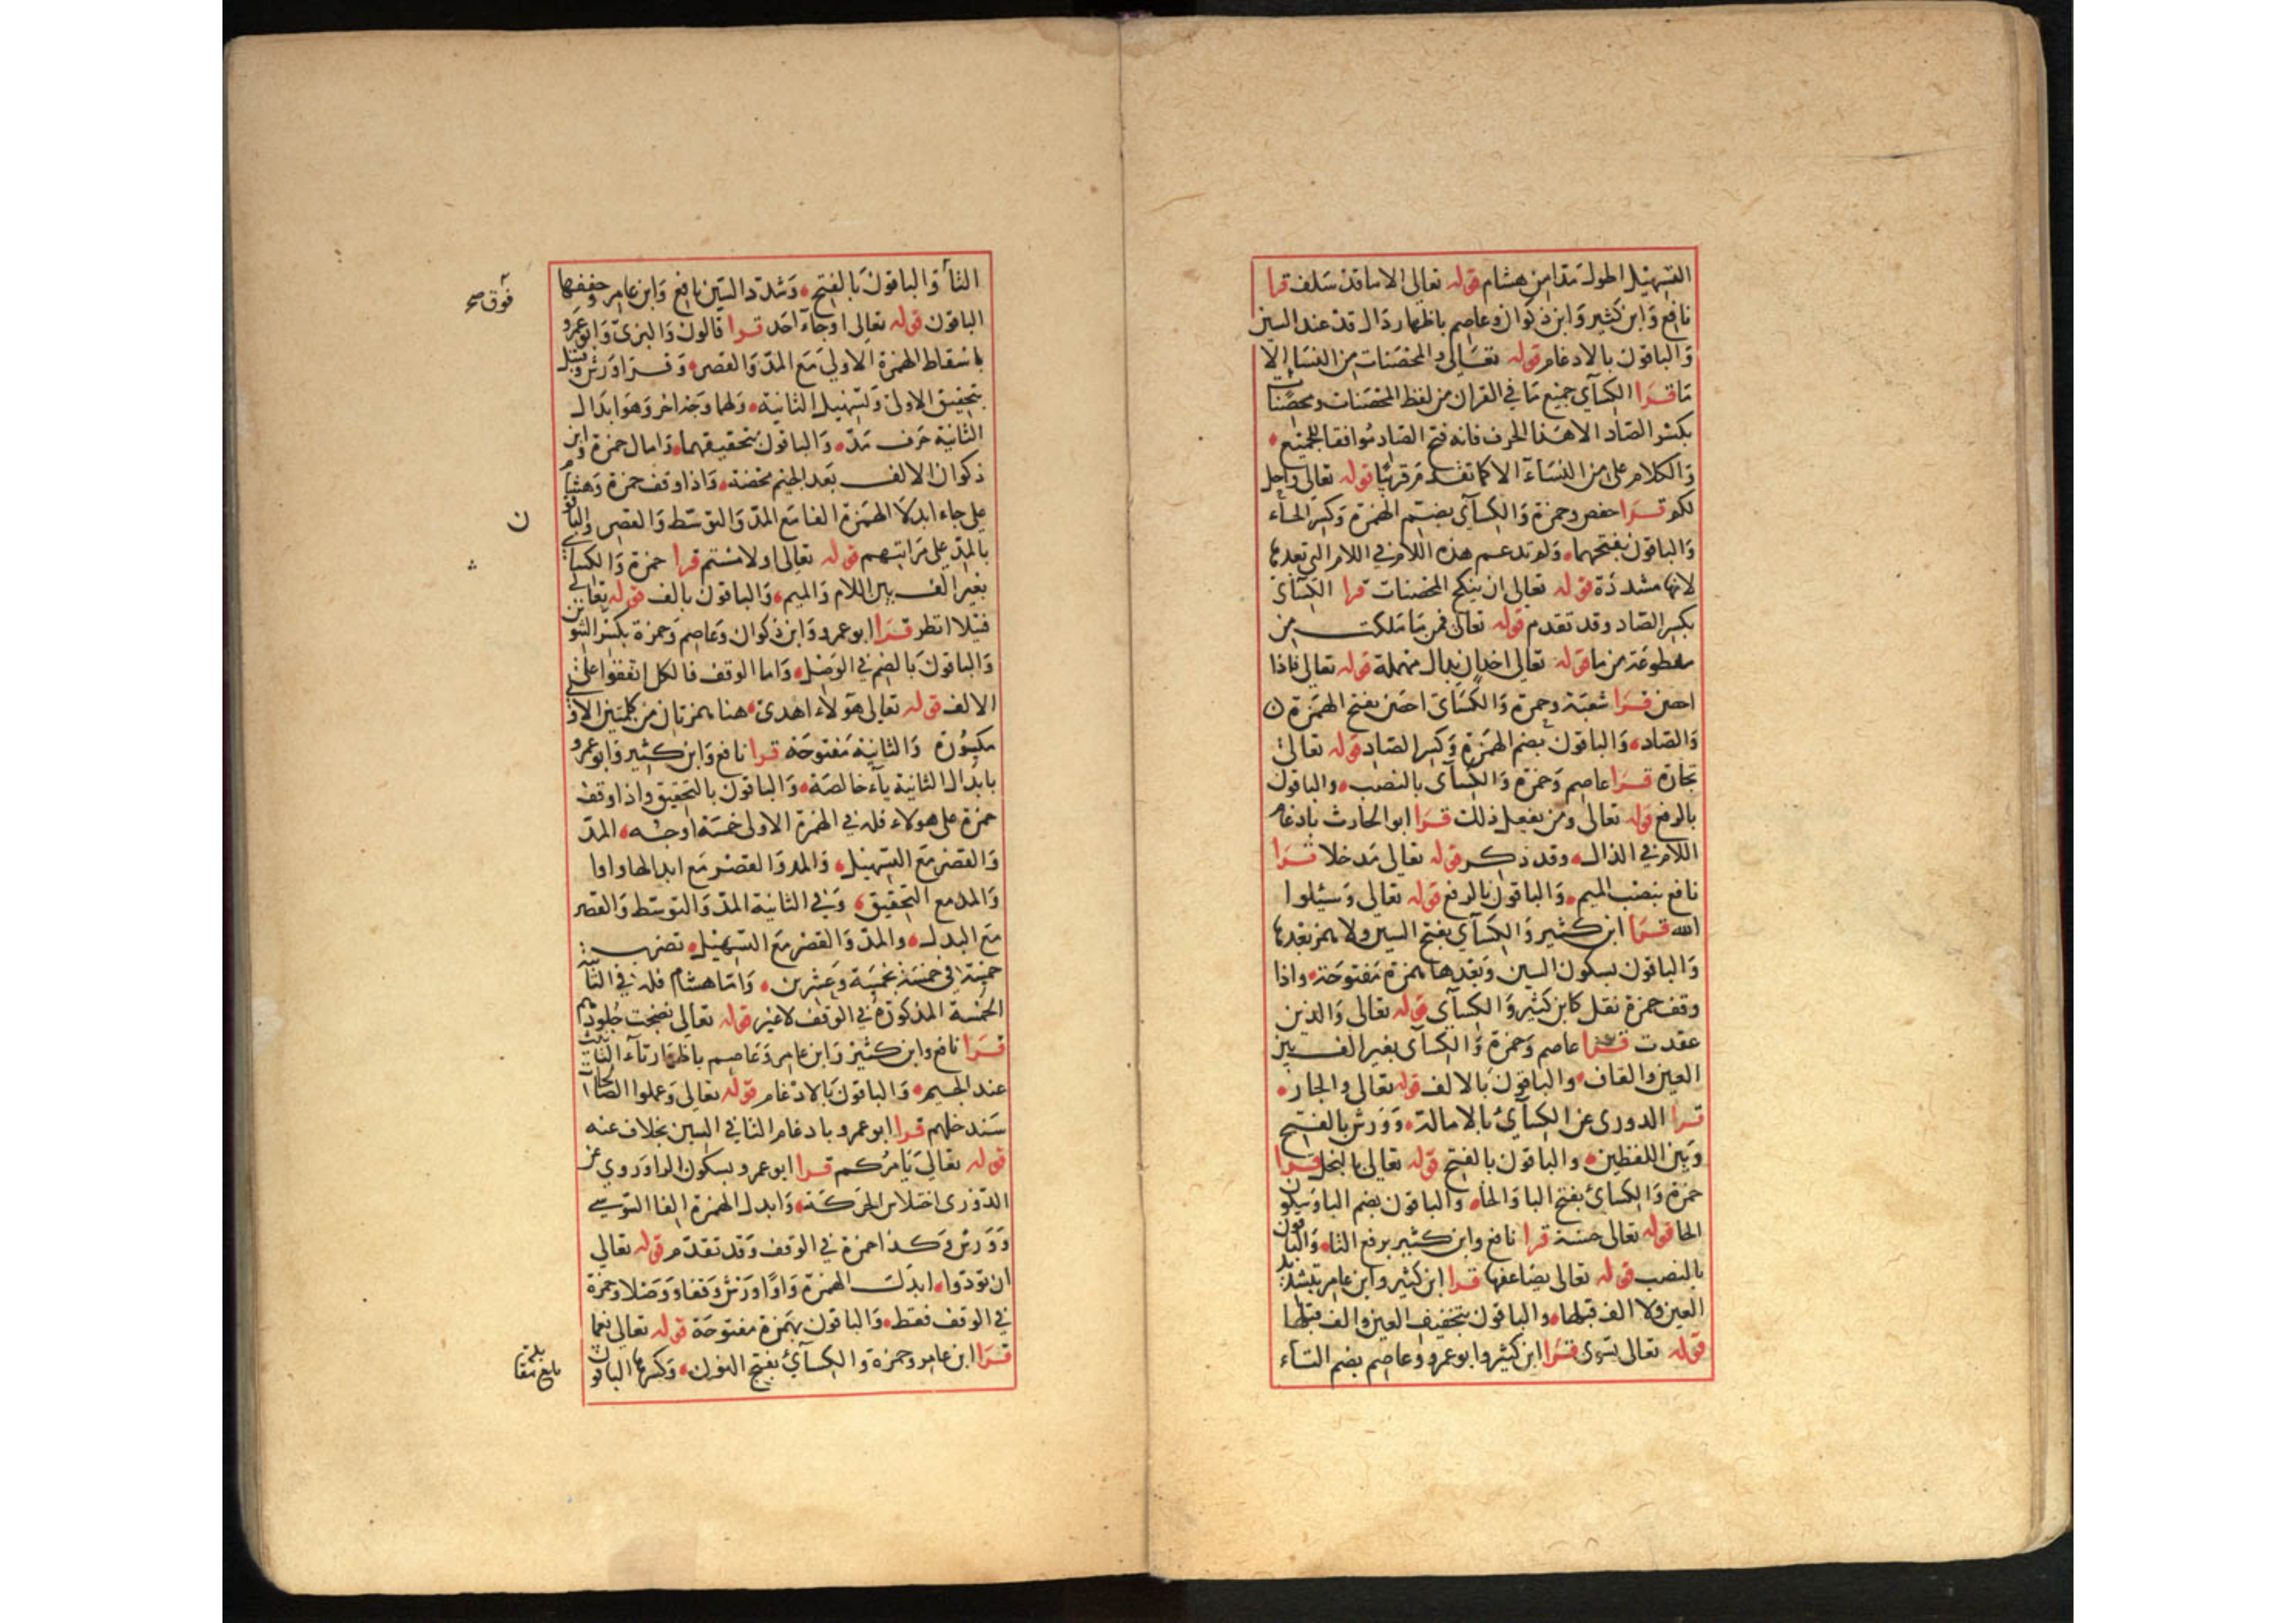 التسهيل اطول مدا من هشام قوله تعالى الا ما قد سلف قرا
نافع وابن كثير وابن ذكوان وعاصم باظهار دال قد عند السين
والباقون بالادغام قوله تعالى والمحصنات من النساء الا
ما قرا الكسآي جميع ما في القران من لفظ المحصنات ومحصنات
بكسر الصاد الا هذا الحرف فانه فتح الصاد موافقا للجميع
والكلام على من النسآء الا كما تقدم قريبا قوله تعالى واحل
لكم قرا حفص وحمزة والكسآي بضم الهمزة وكسر الحآء
والباقون بفتحهما ولم تدغم هذه اللام في اللام التي بعدها
لانها مشددة قوله تعالى ان ينكح المحصنات قرا الكسآي
بكسر الصاد وقد تقدم قوله تعالى فمن ما ملكت من
مقطوعة من ما قوله تعالى اخدان بدال مهملة قوله تعالى فاذا
احصن قرا شعبة وحمزة والكسآي احصن بفتح الهمزة
والصاد والباقون بضم الهمزة وكسر الصاد قوله تعالى
تجارة قرا عاصم وحمزة والكسآي بالنصب والباقون
بالرفع قوله تعالى ومن يفعل ذلك قرا ابو الحارث بادغام
اللام في الذال وقد ذكر قوله تعالى مدخلا قرا
نافع بنصب الميم والباقون بالرفع قوله تعالى وسئلوا
الله قرا ابن كثير والكسآي بفتح السين ولا همز بعدها
والباقون بسكون السين وبعدها همزة مفتوحة واذا
وقف حمزة نقل كابن كثير والكسآي قوله تعالى والذين
عقدت قرا عاصم وحمزة والكسآي بغير الف بين
العين والقاف والباقون بالالف قوله تعالى والجار
قرا الدوري عن الكسآي بالامالة وورش بالفتح
وبين اللفظين والباقون بالفتح قوله تعالى بالبخل قرا
حمزة والكسائ بفتح البا والحاء والباقون بضم البا وسكون
الحا قوله تعالى حسنة قرا نافع وابن كثير برفع التا والباقون
بالنصب قوله تعالى يضاعفها قرا ابن كثير وابن عامر بتشديد
العين ولا الف قبلها والباقون بتخفيف العين والف قبلها
قوله تعالى تسوى قرا ابن كثير وابو عمرو وعاصم بضم التآء
التآ والباقون بالفتح وشدد السين نافع وابن عامر وخففها
الباقون قوله تعالى او جآء احد قرا قالون والبزي وابو عمرو
باسقاط الهمزة الاولى مع المد والقصر وقرا ورش وقنبل
بتحقيق الاولى وتسهيل الثانية ولهما وجه اخر وهو ابدال
الثانية حرف مد والباقون بتحقيقهما وامال حمزة وابن
ذكوان الالف بعد الجيم محضة واذا وقف حمزة وهشام
على جاء ابدلا الهمزة الفا مع المد والتوسط والقصر والباقون
بالمد على مراتبهم قوله تعالى او لامستم قرا حمزة والكسآي
بغير الف بين اللام والميم والباقون بالف قوله تعالى
فتيلا انظر قرا ابو عمرو وابن ذكوان وعاصم وحمزة بكسر التنوين
والباقون بالضم في الوصل واما الوقف فالكل اتفقوا على
الالف قوله تعالى هؤلاء اهدى هنا همزتان من كلمتين الاولى
مكسورة والثانية مفتوحة قرا نافع وابن كثير وابو عمرو
بابدال الثانية يآء خالصة والباقون بالتحقيق واذا وقف
حمزة على هولاء فله في الهمزة الاولى خمسة اوجه المد
والقصر مع التسهيل والمد والقصر مع ابدالها واوا
والمد مع التحقيق وفي الثانية المد والتوسط والقصر
مع البدل والمد والقصر مع التسهيل تضرب
خمسة في خمسة بخمسة وعشرين واما هشام فله في الثانية
الخمسة المذكورة في الوقف لا غير قوله تعالى نضجت جلودهم
قرا نافع وابن كثير وابن عامر وعاصم باظهار تآء التانيث
عند الجيم والباقون بالادغام قوله تعالى وعملوا الصالحات
سندخلهم قرا ابو عمرو بادغام التا في السين بخلاف عنه
قوله تعالى يامركم قرا ابو عمرو بسكون الرا وروي عن
الدوري اختلاس الحركة وابدل الهمزة الفا السوسي
وورش وكذا حمزة في الوقف وقد تقدم قوله تعالى
ان تودوا ابدل الهمزة واوا ورش وقفا ووصلا وحمزة
في الوقف فقط والباقون بهمزة مفتوحة قوله تعالى نعما
قرا ابن عامر وحمزة والكسآي بفتح النون وكسرها الباقون
فوق صح
ن
بلغ